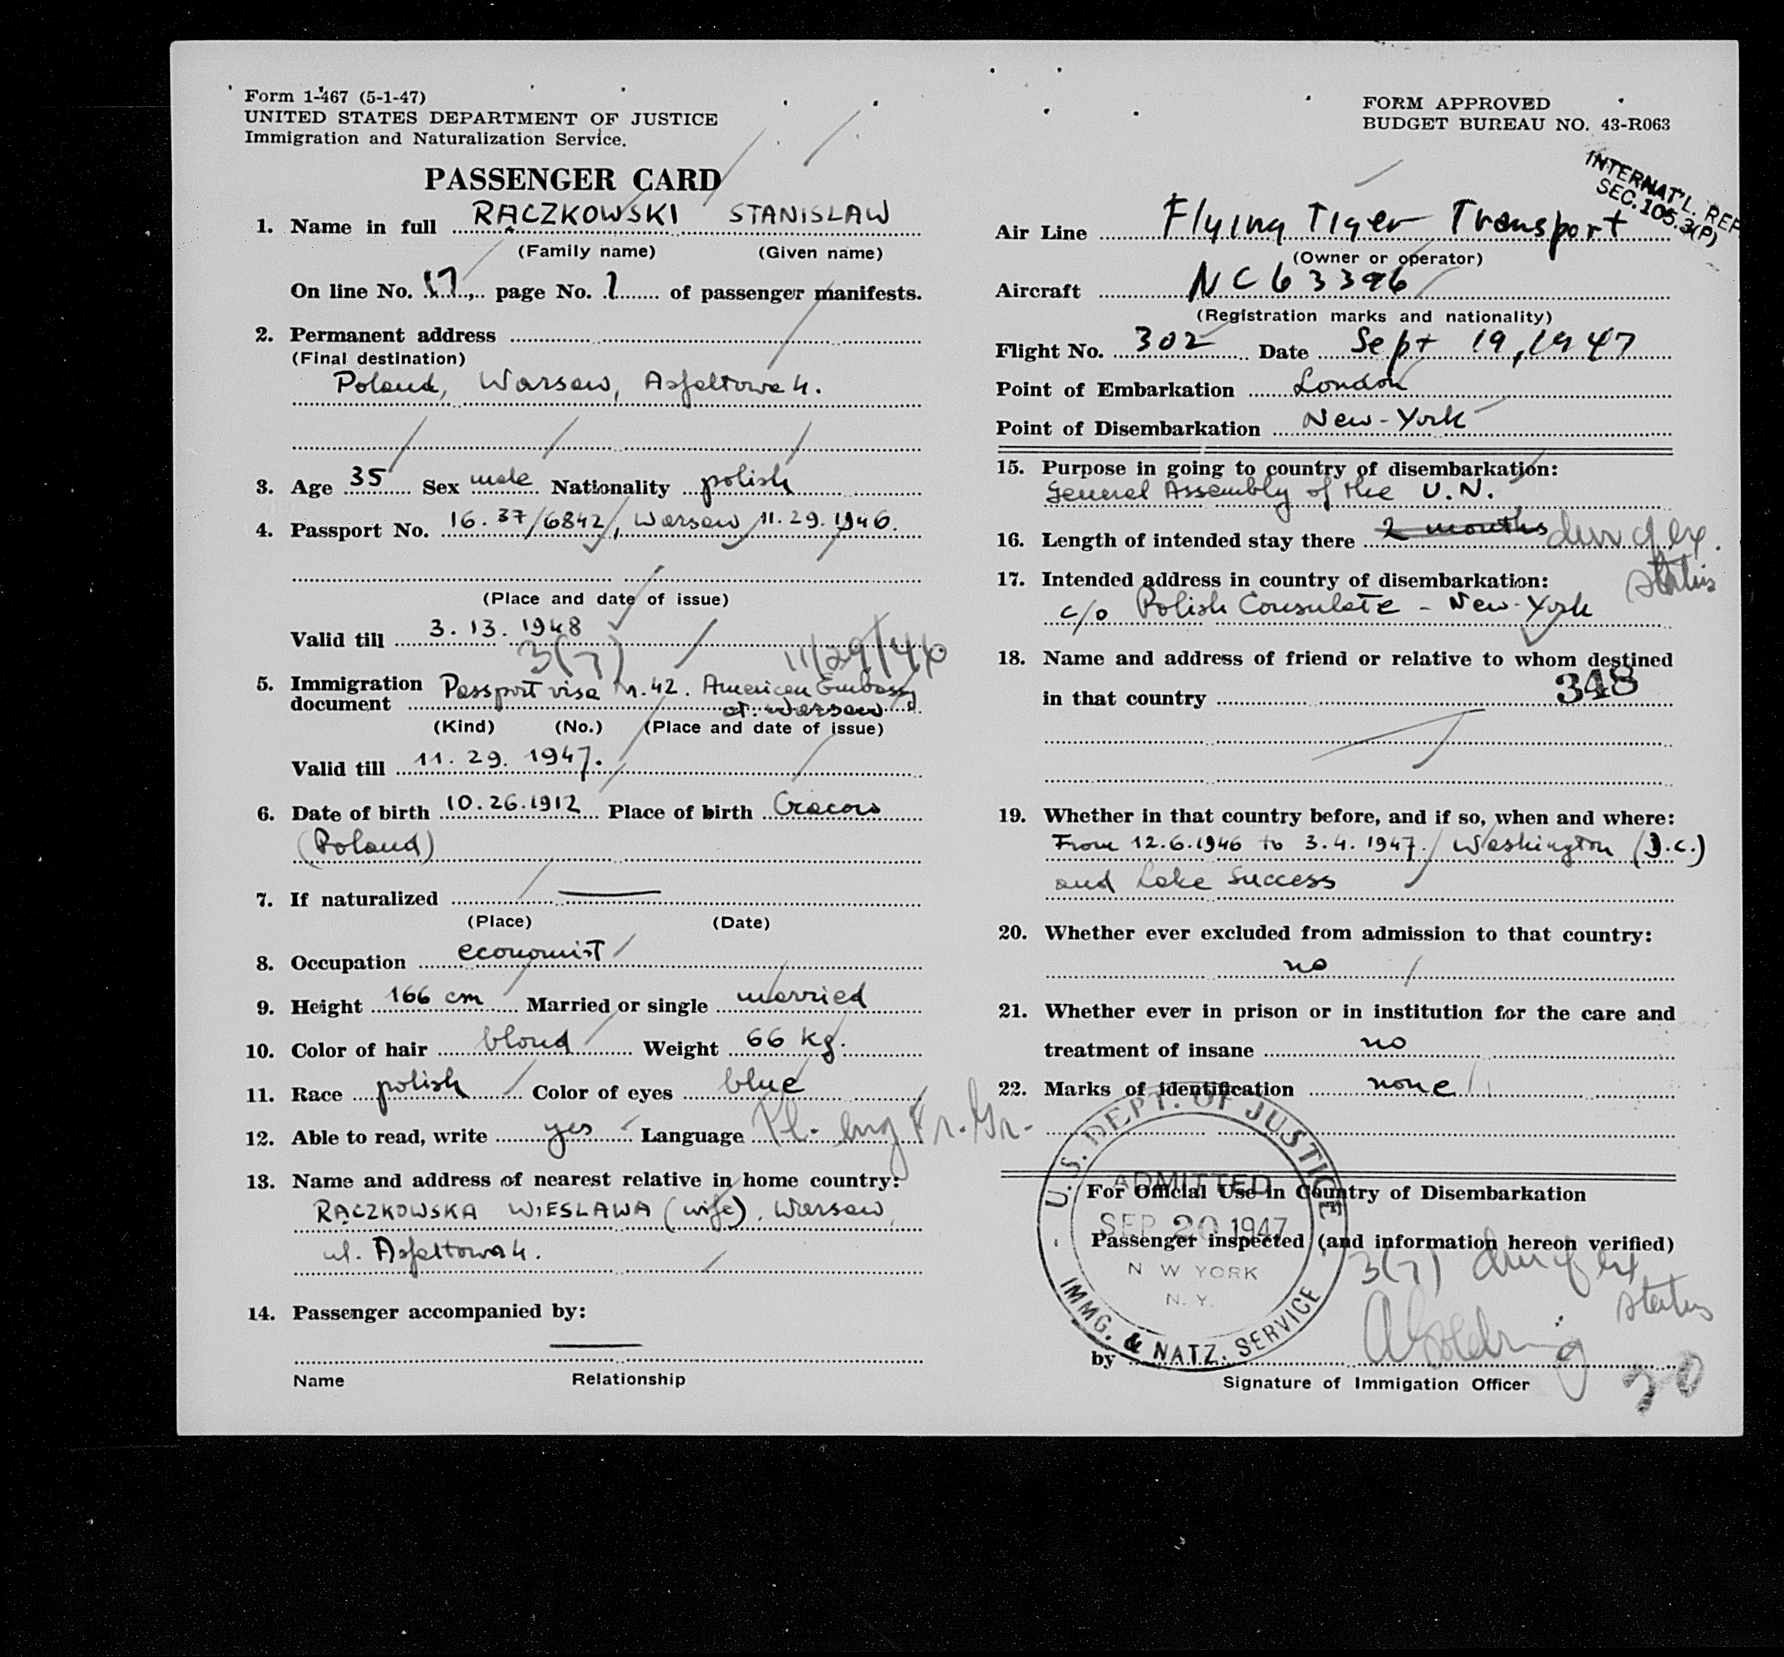 Form 1-467 (5-1-47)
UNITED STATES DEPARTMENT OF JUSTICE
Immigration and Naturalization Service.
PASSENGER CARD
1. Name in full RĄCZKOWSKI STANISLAW
(Family name) (Given name)
On line No. 17, page No. 1 of passenger manifests.
2. Permanent address
(Final destination)
Poland, Warsaw, Asfaltowa 4.
3. Age 35 Sex male Nationality polish
4. Passport No. 16.37/6842/, Warsaw, 11.29.1946.
(Place and date of issue)
Valid till 3.13.1948
3(7) 11/29/46
5. Immigration document Passport visa Nr. 42. American Embassy
at. Warsaw
(Kind) (No.) (Place and date of issue)
Valid till 11.29.1947.
6. Date of birth 10.26.1912 Place of birth Cracow
(Poland)
7. If naturalized
(Place) (Date)
8. Occupation economist
9. Height 166 cm Married or single married
10. Color of hair blond Weight 66 kg.
11. Race polish Color of eyes blue
12. Able to read, write yes Language Pl. Eng Fr. Gr.
13. Name and address of nearest relative in home country:
RĄCZKOWSKA WIESLAWA (wife), Warsaw,
ul. Asfaltowa 4.
14. Passenger accompanied by:
Name Relationship
FORM APPROVED
BUDGET BUREAU NO. 43-R063
INTERNAT'L. REP.
SEC. 105.3(P)
Air Line Flying Tiger Transport
(Owner or operator)
Aircraft NC63396
(Registration marks and nationality)
Flight No. 302 Date Sept 19, 1947
Point of Embarkation London
Point of Disembarkation New-York
15. Purpose in going to country of disembarkation:
General Assembly of the U.N.
16. Length of intended stay there 2 months dur of ex.
status
17. Intended address in country of disembarkation:
c/o Polish Consulate - New-York
18. Name and address of friend or relative to whom destined
in that country 348
19. Whether in that country before, and if so, when and where:
From 12.6.1946 to 3.4.1947. Washington (D.C.)
and Lake Success
20. Whether ever excluded from admission to that country:
no
21. Whether ever in prison or in institution for the care and
treatment of insane no
22. Marks of identification none
U.S. DEPT. OF JUSTICE
ADMITTED
For Official Use in Country of Disembarkation
SEP 20 1947
Passenger inspected (and information hereon verified)
N W YORK
N. Y.
IMMG. & NATZ. SERVICE
3(7) dur of ex
status
by
Signature of Immigation Officer
20